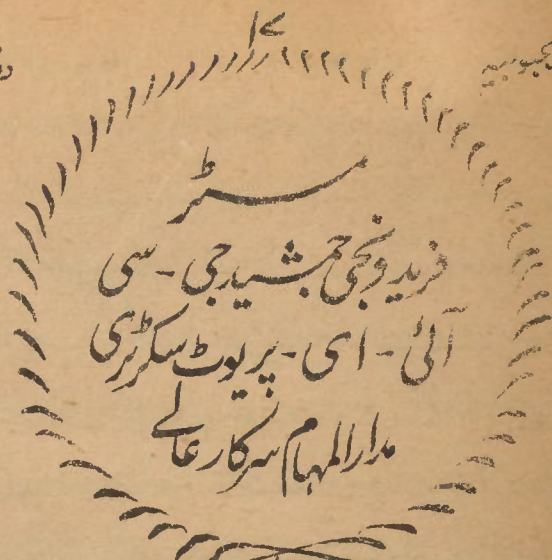 ۱۷
مسٹر
فریدونجی جمشیدجی - سی
آئی - ای - پریوٹ سکرٹری
مدارالمہام سرکار عالے